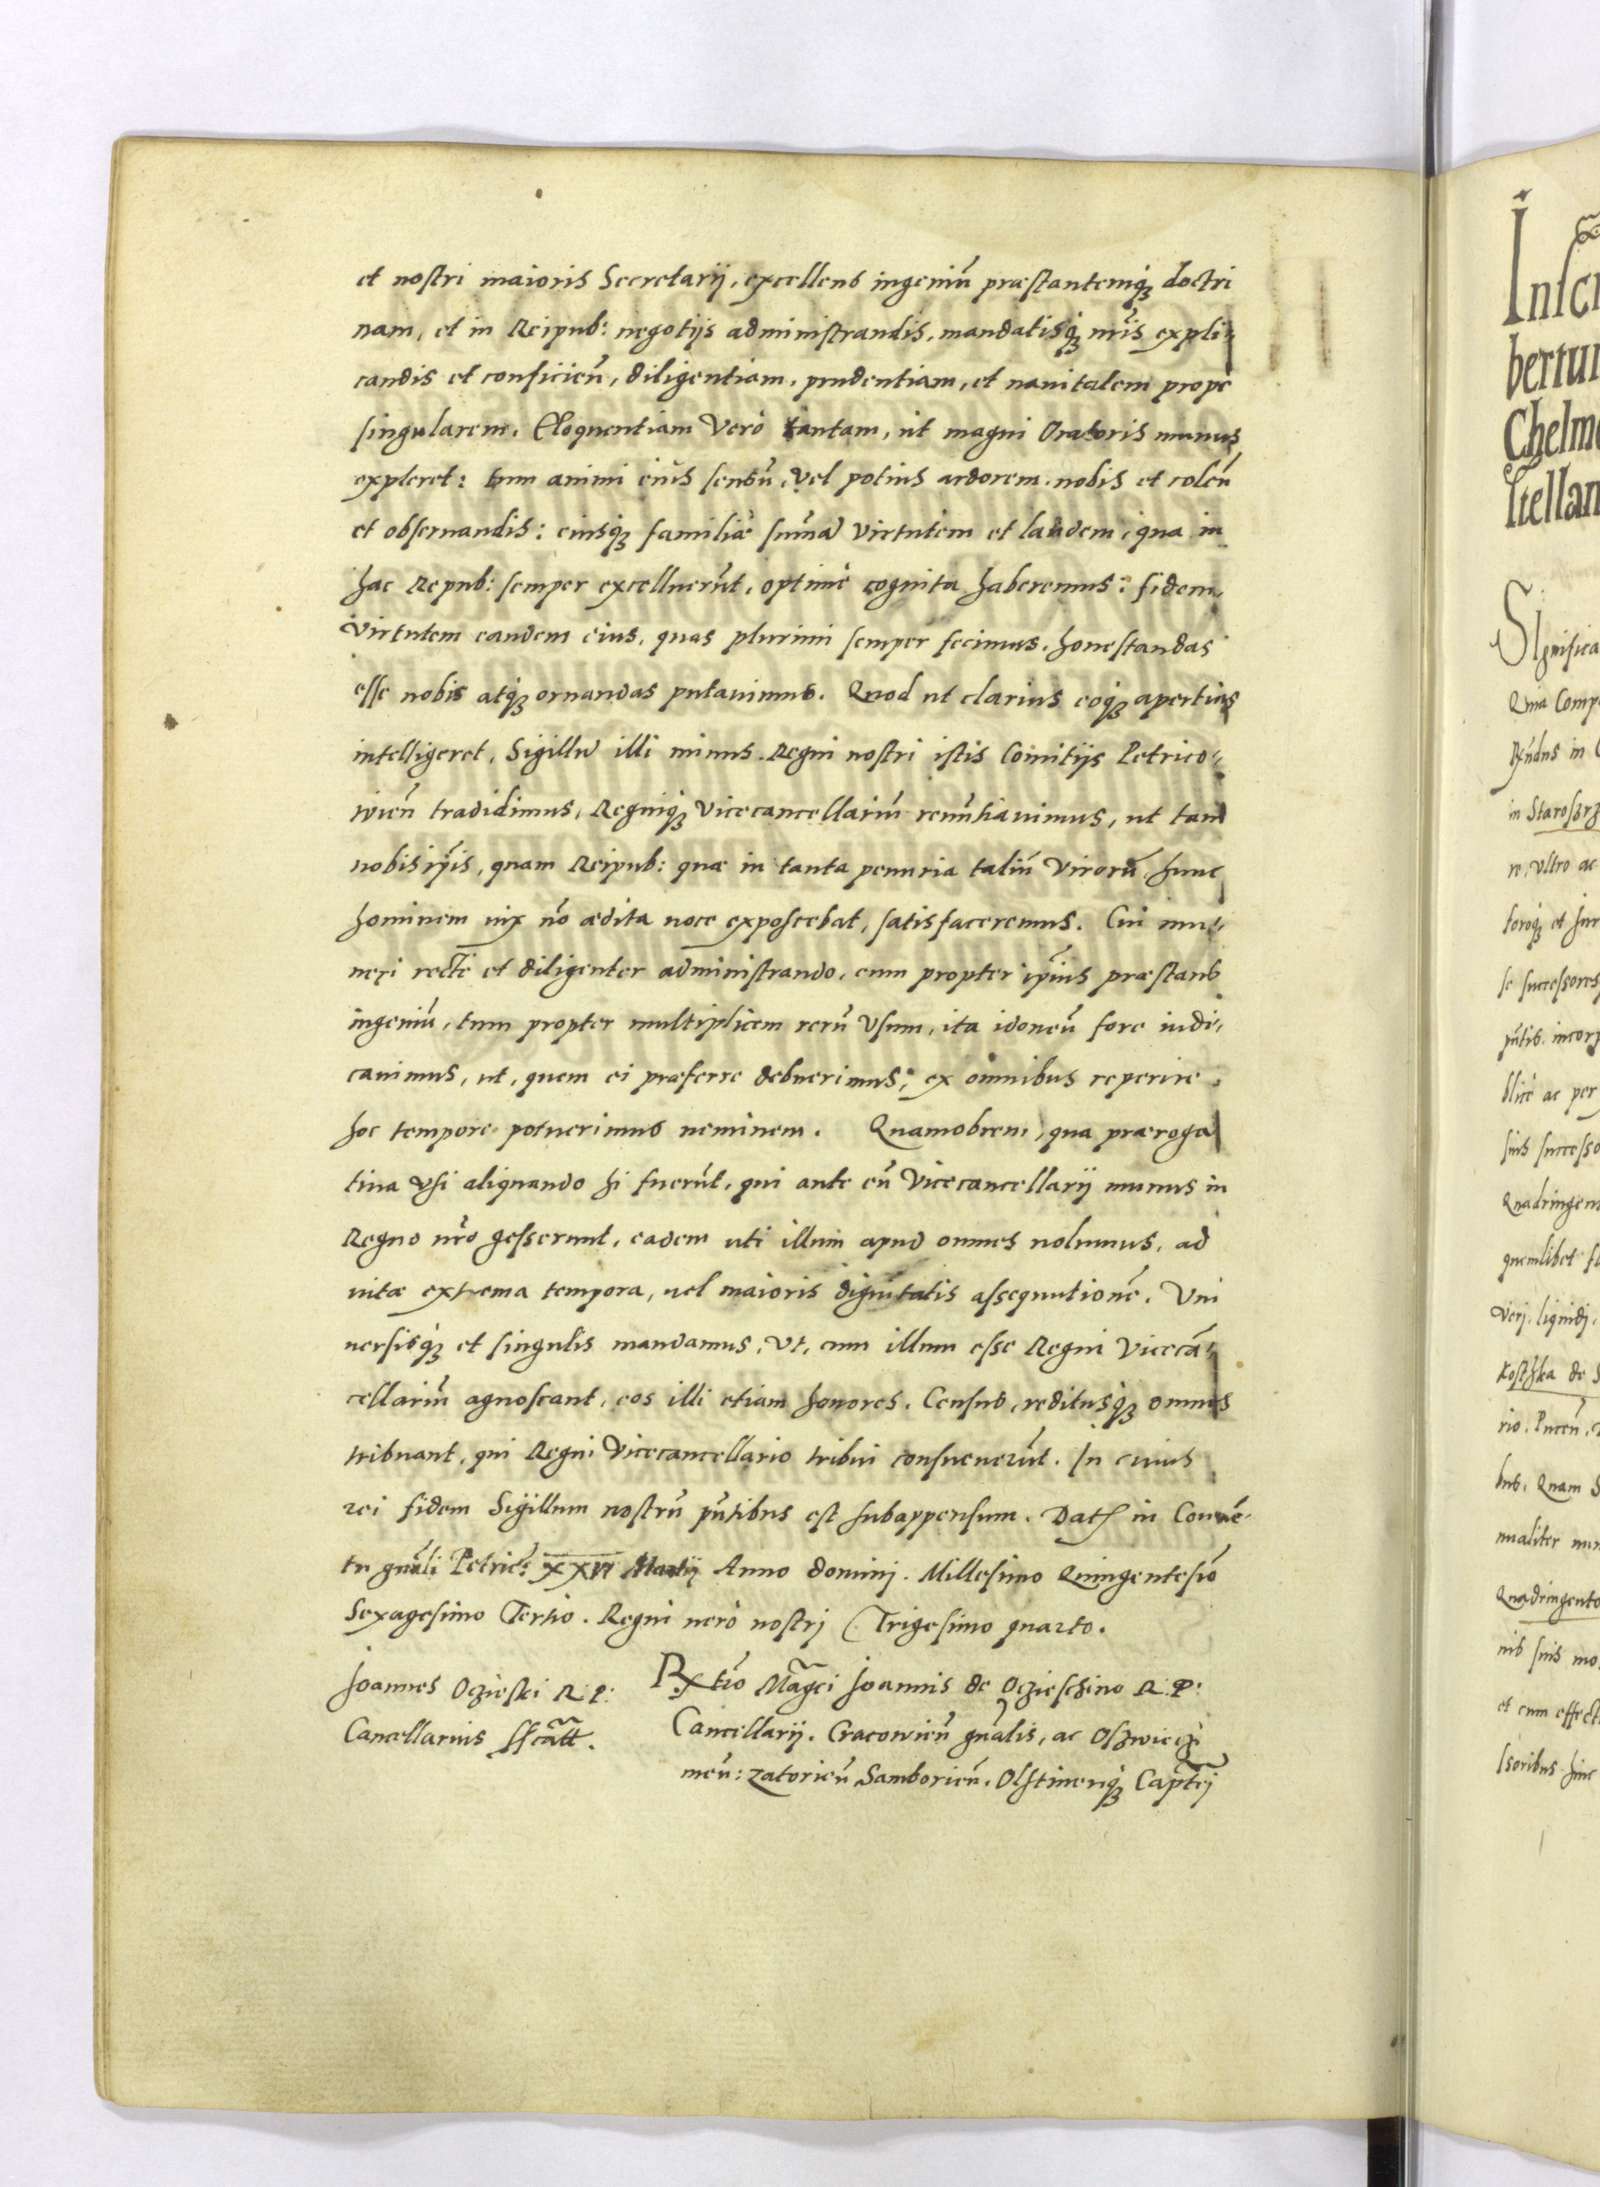 et nostri maioris Secretarij, excellens ingeniũ præstantemq́ꝫ doctri
nam, et in Reipub: negotijs administrandis, mandatisq́ꝫ nr̃is expli-
candis et conficieñ, diligentiam, prudentiam, et nauitatem prope
singularem, Eloquentiam verò tantam, ut magni Oratoris munus
expleret: tum animi eius sensũ, vel potius ardorem, nobis et coleñ
et obseruandis: eiusq́ꝫ familiæ sum̃ã virtutem et laudem, qua in
hac Repub: semper excelluerũt, optimè cognita haberemus: fidem,
virtutem eandem eius, quas plurimi semper fecimus, honestandas
esse nobis atq́ꝫ ornandas putauimus. Quod ut clarius eoq́ꝫ apertius
intelligeret, Sigillũ illi minus Regni nostri istis Comitijs Petrico-
wieñ tradidimus, Regniq́ꝫ Vicecancellariũ renũtiauimus, ut tam
nobis ip̃is, quam Reipub: quæ in tanta penuria taliũ virorũ, hunc
hominem uix nõ ædita uoce exposcebat, satisfaceremus. Cui mu-
neri rectè et diligenter administrando, cum propter ip̃ius præstans
ingeniũ, tum propter multiplicem rerũ vsum, ita idoneũ fore iudi-
cauimus, ut, quem ei præferre debuerimus, ex omnibus reperire
hoc tempore potuerimus neminem. Quamobrem, qua præroga
tiua vsi aliquando hi fuerũt, qui ante eũ Vicecancellarij munus in
Regno nr̃o gesserunt, eadem uti illum apud omnes uolumus, ad
uitæ extrema tempora, uel maioris dignitatis assequutionẽ. Vni
uersisq́ꝫ et singulis mandamus, vt, cum illum esse Regni Vicecã-
cellariũ agnoscant, eos illi etiam honores, Census, reditusq́ꝫ omnes
tribuant, qui Regni Vicecancellario tribui consueuerũt. In cuius
rei fidem Sigillum nostrũ pñtibus est subappensum. Datꝭ in Conuẽ-
tu gñali Petric: XXVI Martij Anno domini. Millesimo Quingentesiõ
Sexagesimo Tertio. Regni uerò nostrj Trigesimo quarto.
Joannes Oczieski R. P:
Cancellarius sscãtt.
Rx̃tio Mãgci Joannis de Oczieschino R: P:
Cancellarij. Cracowieñ gñalis, ac Oszwieczi
meñ: Zatorieñ Samborieñ. Olstineñq́ꝫ Cap̃tej
Inscr
bertum
Chelme
stellan
Significa
Quia Comp
in Staroszrz
re, vltro ac
toroq́ꝫ et Jur
se successores
pñtib. incorp
blicè ac per
suis successo
Quadringent
quemlibet fl
verj, liquidj,
Kosthka de S
rio. Puceñ.
bus. Quam S
nualiter num
Quadringento
nib suis mo
et cum effect
ssoribus hinc